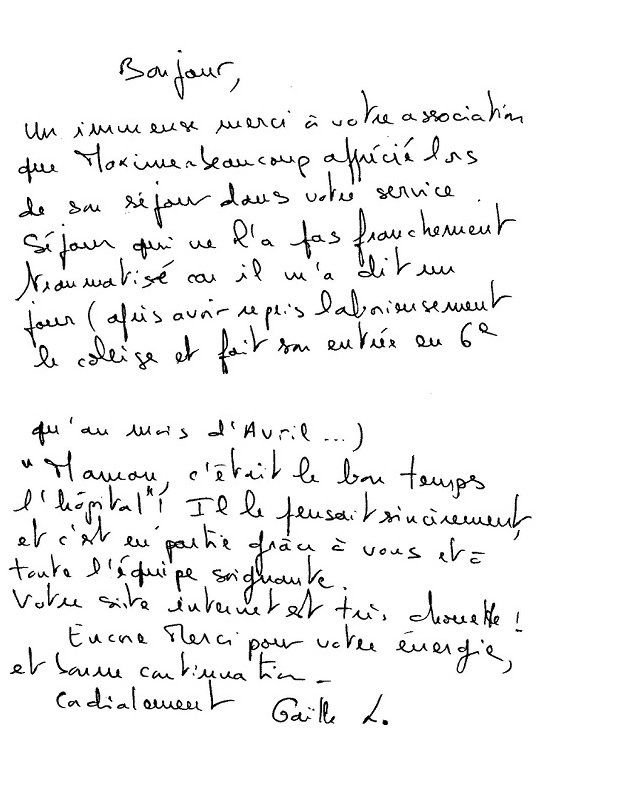 Bonjour,
un immense merci à votre association
que Maxime a beaucoup apprécié lors
de son séjour dans votre service.
Séjour qui ne l'a pas franchement
traumatisé car il m'a dit un
jour (après avoir repris laborieusement
le collège et fait son entrée en 6e
qu'au mois d'Avril...)
"Maman, c'était le bon temps
l'hôpital"! Il le pensait sincèrement,
et c'est en partie grâce à vous et à
toute l'équipe soignante.
Votre site internet est très chouette!
Encore Merci pour votre énergie,
et bonne continuation -
Cordialement Gaëlle L.